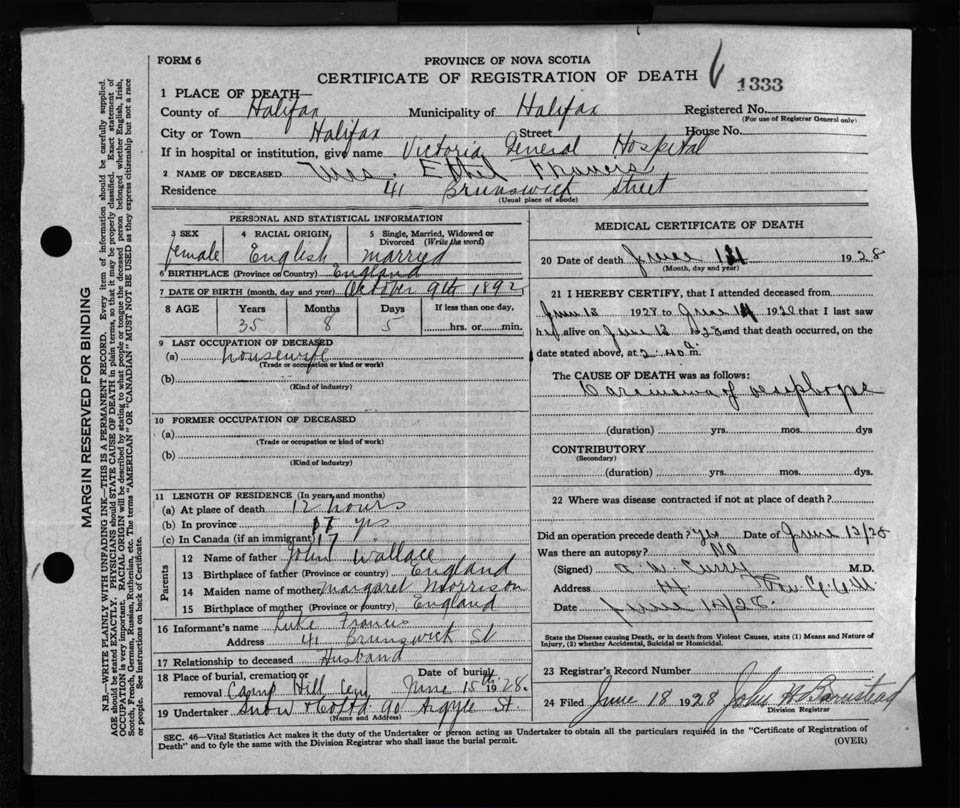 FORM 6
PROVINCE OF NOVA SCOTIA
CERTIFICATE OF REGISTRATION OF DEATH
1333
1 PLACE OF DEATH—
County of Halifax Municipality of Halifax Registered No.
(For use of Registrar General only)
City or Town Halifax Street House No.
If in hospital or institution, give name Victoria General Hospital
2 NAME OF DECEASED Mrs. Ethel Francis
Residence 41 Brunswick Street
(Usual place of abode)
PERSONAL AND STATISTICAL INFORMATION
3 SEX 4 RACIAL ORIGIN 5 Single, Married, Widowed or
Divorced (Write the word)
female English married
6 BIRTHPLACE (Province or Country) England
7 DATE OF BIRTH (month, day and year) October 9th 1892
8 AGE Years Months Days If less than one day,
35 8 5 hrs. or min.
9 LAST OCCUPATION OF DECEASED
(a) housewife
(Trade or occupation or kind or work)
(b)
(Kind of industry)
10 FORMER OCCUPATION OF DECEASED
(a)
(Trade or occupation or kind of work)
(b)
(Kind of industry)
11 LENGTH OF RESIDENCE (In years and months)
(a) At place of death 12 hours
(b) In province 17 yrs
(c) In Canada (if an immigrant) 17
Parents
12 Name of father John Wallace
13 Birthplace of father (Province or country) England
14 Maiden name of mother Margaret Morrison
15 Birthplace of mother (Province or country) England
16 Informant's name Luke Francis
Address 41 Brunswick St
17 Relationship to deceased Husband
18 Place of burial, cremation or Date of burial
removal Camp Hill Cem June 15th 1928.
19 Undertaker Snow & Co Ltd 90 Argyle St
(Name and Address)
MEDICAL CERTIFICATE OF DEATH
20 Date of death June 14 1928
(Month, day and year)
21 I HEREBY CERTIFY, that I attended deceased from
June 13 1928 to June 14 1928 that I last saw
her alive on June 13 1928 and that death occurred, on the
date stated above, at 2.40 a.m.
The CAUSE OF DEATH was as follows:
Carcinoma of
(duration) yrs. mos. dys
CONTRIBUTORY
(Secondary)
(duration) yrs. mos. dys.
22 Where was disease contracted if not at place of death?
Did an operation precede death? Yes Date of June 13/28
Was there an autopsy? No
(Signed) A. W. Curry M.D.
Address
Date June 14/28.
State the Disease causing Death, or in death from Violent Causes, state (1) Means and Nature of
Injury, (2) whether Accidental, Suicidal or Homicidal.
23 Registrar's Record Number
24 Filed June 18 1928 John H Barnstead
Division Registrar
SEC. 46—Vital Statistics Act makes it the duty of the Undertaker or person acting as Undertaker to obtain all the particulars required in the "Certificate of Registration of
Death" and to fyle the same with the Division Registrar who shall issue the burial permit.
(OVER)
MARGIN RESERVED FOR BINDING
N.B.—WRITE PLAINLY WITH UNFADING INK—THIS IS A PERMANENT RECORD. Every item of information should be carefully supplied.
AGE should be stated EXACTLY. PHYSICIANS should STATE CAUSE OF DEATH in plain terms, so that it may be properly classified. Exact statement of
OCCUPATION is very important. RACIAL ORIGIN will be described by stating to what people or tongue the deceased person belonged whether English, Irish,
Scotch, French, German, Russian, Ruthenian, etc. The terms "AMERICAN" OR "CANADIAN" MUST NOT BE USED as they express citizenship but not a race
or people. See instructions on back of Certificate.